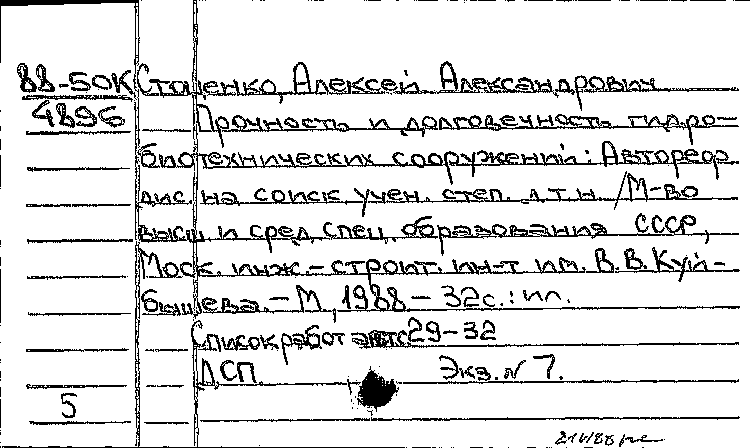 88-50К Стоценко, Алексей Александрович
4896 Прочность и долговечность гидро-
биотехнических сооружений: Автореф.
дис. на соиск. учен. степ. д.т.н. /М-во
высш. и сред. спец. образования СССР,
Моск. инж.-строит. ин-т им. В.В. Куй-
бышева. - М, 1988 - 32с.: ил.
Список работ авт. с 29-32
ДСП. Экз. № 7.
5